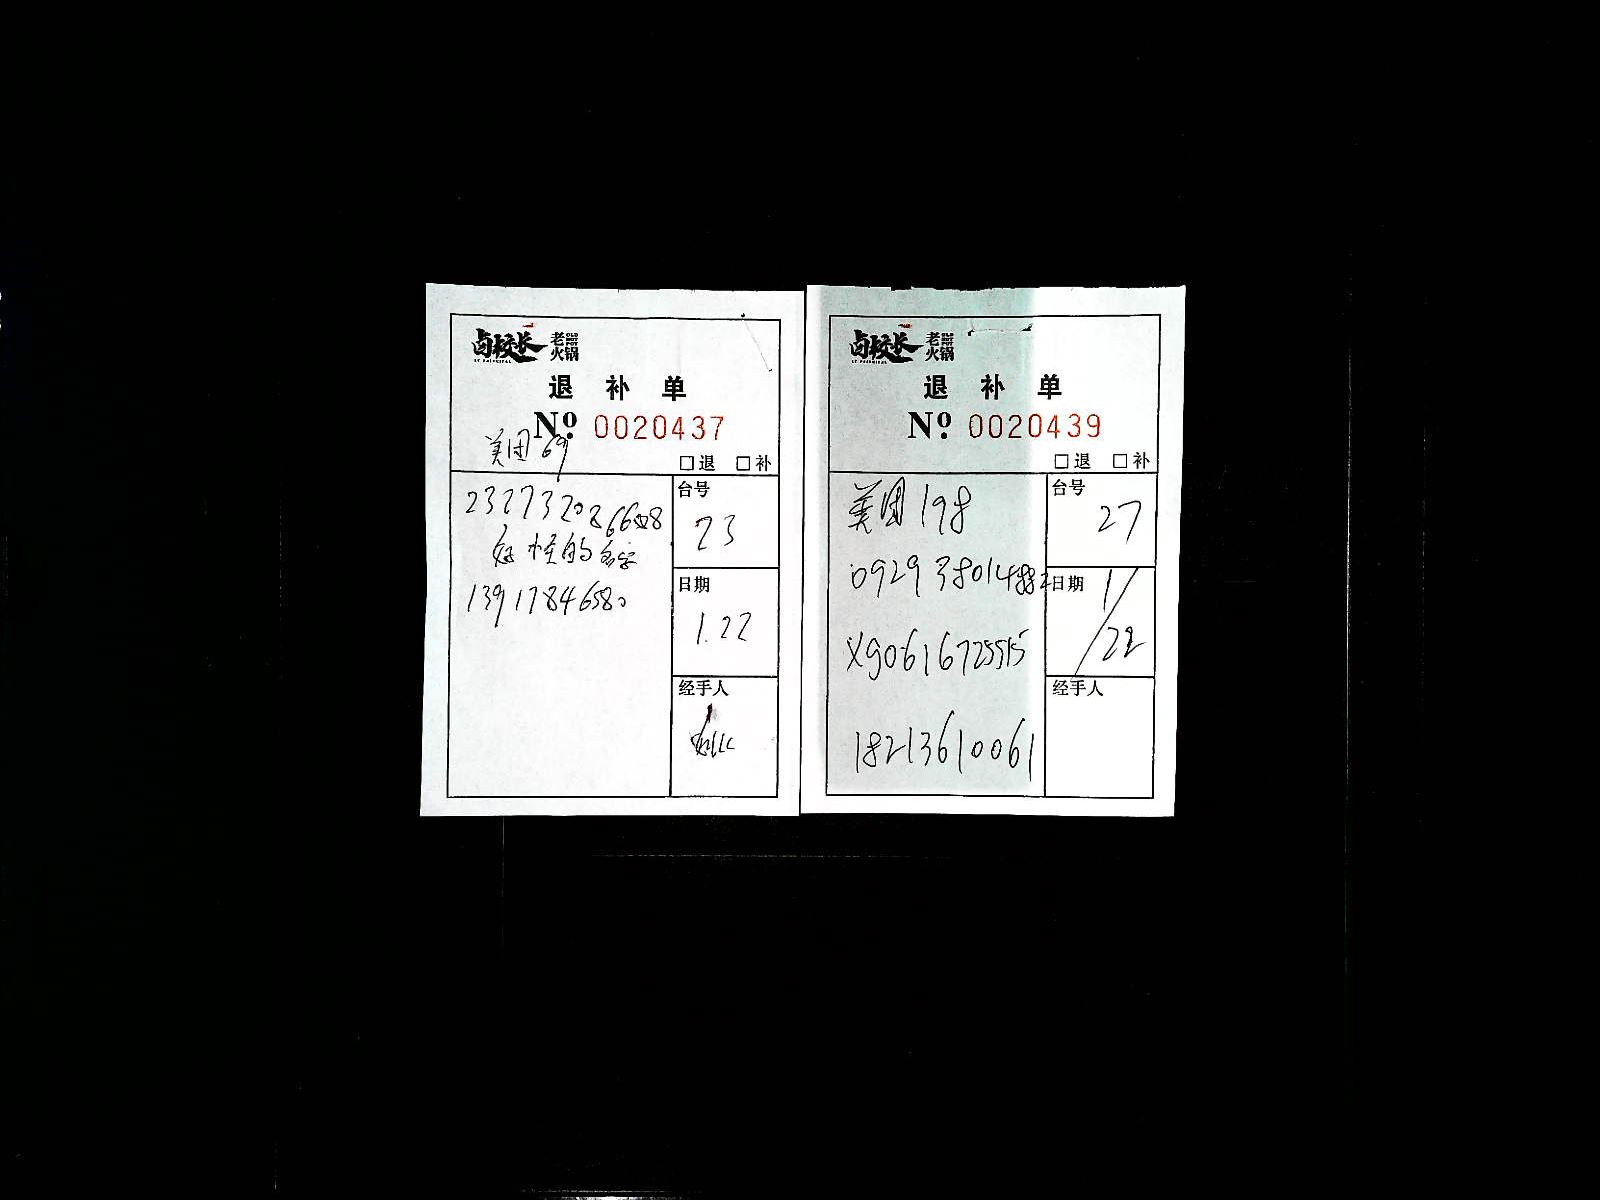 卤校长 老火锅
退 补 单
Nº. 0020437
美团 69
□退 □补
2327320266688
好怪的名字
13917846580
台号
23
日期
1.22
经手人
卤校长 老火锅
退 补 单
Nº. 0020439
□退 □补
美团 198
0929380148832
xg0616725515
18213610061
台号
27
日期
1/22
经手人